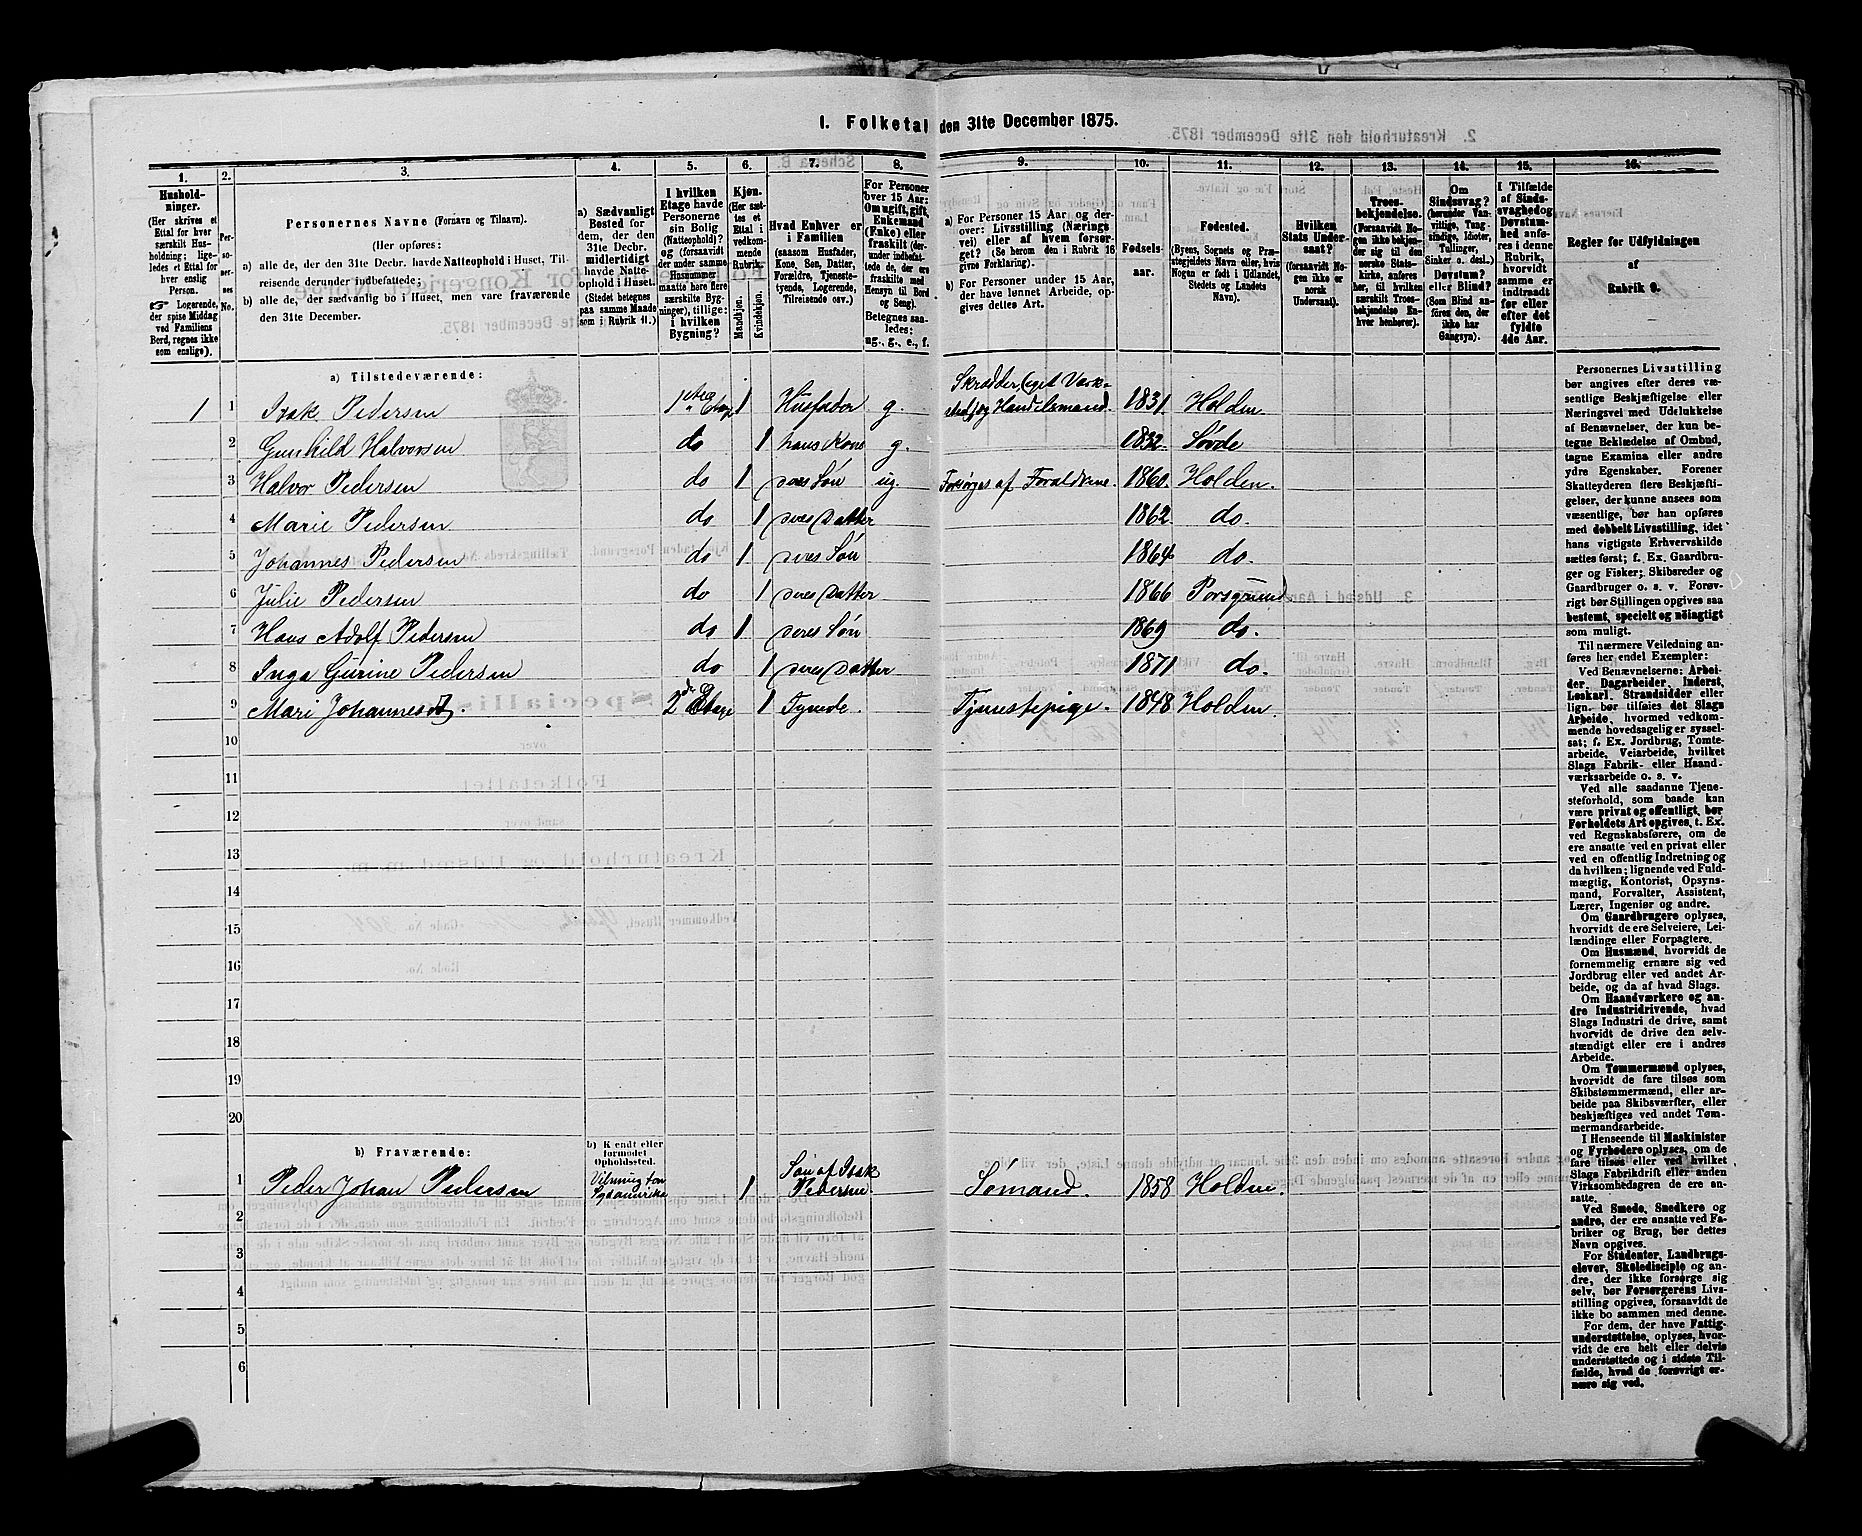 1. Folketal den 31te December 1875.
1.
2.
3.
4.
5.
6.
7.
8.
9.
10.
11.
12.
13.
14.
15.
16.
Hushold-
ninger.
(Her skrives et
Ettal for hver
særskilt Hus-
holdning; lige-
ledes et Ettal for
hver enslig
Person.
Logerende,
der spise Middag
ved Familiens
Bord, regnes ikke
som enslige).
Per-
so-
ner-
nes
No.
Personernes Navne (Fornavn og Tilnavn).
(Her opføres:
a) alle de, der den 31te Decbr. havde Natteophold i Huset, Til-
reisende derunder indbefattede;
b) alle de, der sædvanlig bo i Huset, men vare fraværende
den 31te December.
a) Sædvanligt
Bosted for
dem, der den
31te Decbr.
midlertidigt
havde Natte-
ophold i Huset.
(Stedet betegnes
paa samme Maade
som i Rubrik 11.)
I hvilken
Etage havde
Personerne
sin Bolig
(Natteophold)?
og (forsaavidt
der under samme
Husnummer
maatte høre flere
særskilte Byg-
ninger), tillige:
i hvilken
Bygning?
Kjøn.
(Her sæt-
tes et
Ettal i
vedkom-
mende
Rubrik.)
Mandkjøn.
Kvindekjøn.
Hvad Enhver er
i Familien
(saasom Husfader,
Kone, Søn, Datter,
Forældre, Tjeneste-
tyende, Logerende,
Tilreisende osv.)
For Personer
over 15 Aar:
Om ugift, gift,
Enkemand
(Enke) eller
fraskilt (der-
under indbefat-
tede de, der ere
fraskilte med
Hensyn til Bord
og Seng).
Betegnes saa-
ledes:
ug., g., e., f.
a) For Personer 15 Aar og der-
over: Livsstilling (Nærings-
vei) eller af hvem forsør-
get? (Se herom den i Rubrik 16
givne Forklaring).
b) For Personer under 15 Aar,
der have lønnet Arbeide, op-
gives dettes Art.
Fødsels-
aar.
Fødested.
(Byens, Sognets og Præ-
stegjeldets Navn eller, hvis
Nogen er født i Udlandet,
Stedets og Landets
Navn).
Hvilken
Stats Under-
saat?
(forsaavidt No-
gen ikke er
norsk
Undersaat).
Troes-
bekjendelse.
(Forsaavidt No-
gen ikke bekjen-
der sig til den
norske Stats-
kirke, anføres
her, til hvilken
særskilt Troes-
bekjendelse En-
hver henhører).
Om
Sindssvag?
(herunder Van-
vittige, Tung-
sindige, Idioter,
Tullinger,
Sinker o. desl.)
Døvstum?
eller Blind?
(Som Blind an-
føres den, der
ikke har
Gangsyn).
I Tilfælde
af Sinds-
svaghed og
Døvstum-
hed anfø-
res i denne
Rubrik,
hvorvidt
samme er
indtraadt
før eller
efter det
fyldte
4de Aar.
Regler for Udfyldningen
af
Rubrik 9.
a) Tilstedeværende:
1 1 Isak Pedersen 1ste Etage 1 Husfader g. Skrædder (eget Værk-
sted) og Handelsmand. 1831. Holden
2 Gunhild Halvorsen do 1 hans Kone g. 1832. Sövde
3 Halvor Pedersen do 1 deres Sön ug. Forsörges af Foraldrene. 1860. Holden.
4 Marie Pedersen do 1 deres Datter 1862. do.
5 Johannes Pedersen do 1 deres Sön 1864 do.
6 Julie Pedersen do 1 deres Datter 1866 Porsgrund
7 Hans Adolf Pedersen do 1 deres Sön 1869 do.
8 Inga Gurine Pedersen do 1 deres Datter 1871 do.
9 Mari Johannesdt. 2den Etage 1 Tyende. Tjenestepige. 1848 Holden.
10
11
12
13
14
15
16
17
18
19
20
b) Fraværende:
b) Kjendt eller
formodet
Opholdssted.
1 Peder Johan Pedersen 1 Sön af Isak
Pedersen Sömand. 1858 Holden
2
3
4
5
6
Personernes Livsstilling
bør angives efter deres væ-
sentlige Beskjæftigelse eller
Næringsvei med Udelukkelse
af Benævnelser, der kun be-
tegne Beklædelse af Ombud,
tagne Examina eller andre
ydre Egenskaber. Forener
Skatteyderen flere Beskjæfti-
gelser, der kunne ansees som
væsentlige, bør han opføres
med dobbelt Livsstilling, idet
hans vigtigste Erhvervskilde
sættes først; f. Ex. Gaardbru-
ger og Fisker; Skibsreder og
Gaardbruger o. s. v. Forøv-
rigt bør Stillingen opgives saa
bestemt, specielt og nøiagtigt
som muligt.
Til nærmere Veiledning an-
føres her endel Exempler:
Ved Benævnelserne: Arbei-
der, Dagarbeider, Inderst,
Løskarl, Strandsidder eller
lign. bør tilføies det Slags
Arbeide, hvormed vedkom-
mende hovedsagelig er syssel-
sat; f. Ex. Jordbrug, Tomte-
arbeide, Veiarbeide, hvilket
Slags Fabrik- eller Haand-
værksarbeide o. s. v.
Ved alle saadanne Tjene-
steforhold, som baade kan
være privat og offentligt, bør
Forholdets Art opgives, t. Ex.
ved Regnskabsførere, om de
ere ansatte ved en privat eller
ved en offentlig Indretning og
da hvilken; lignende ved Fuld-
mægtig, Kontorist, Opsyns-
mand, Forvalter, Assistent,
Lærer, Ingeniør og andre.
Om Gaardbrugere oplyses,
hvorvidt de ere Selveiere, Lei-
lændinge eller Forpagtere.
Om Husmænd, hvorvidt de
fornemmelig ernære sig ved
Jordbrug eller ved andet Ar-
beide, og da af hvad Slags.
Om Haandværkere og an-
dre Industridrivende, hvad
Slags Industri de drive, samt
hvorvidt de drive den selv-
stændigt eller ere i andres
Arbeide.
Om Tømmermænd oplyses,
hvorvidt de fare tilsøs som
Skibstømmermænd, eller ar-
beide paa Skibsværfter, eller
beskjæftiges ved andet Tøm-
mermandsarbeide.
I Henseende til Maskinister
og Fyrbødere oplyses, om de
fare tilsøs eller ved hvilket
Slags Fabrikdrift eller anden
Virksomhedsgren de ere an-
satte.
Ved Smede, Snedkere og
andre, der ere ansatte ved Fa-
briker og Brug, bør dettes
Navn opgives.
For Studenter, Landbrugs-
elever, Skoledisciple og an-
dre, der ikke forsørge sig
selv, bør Forsørgerens Livs-
stilling opgives, forsaavidt de
ikke bo sammen med denne.
For dem, der have Fattig-
understøttelse, oplyses, hvor-
vidt de ere helt eller delvis
understøttede og i sidste Til-
fælde, hvad de forøvrigt er-
nære sig ved.